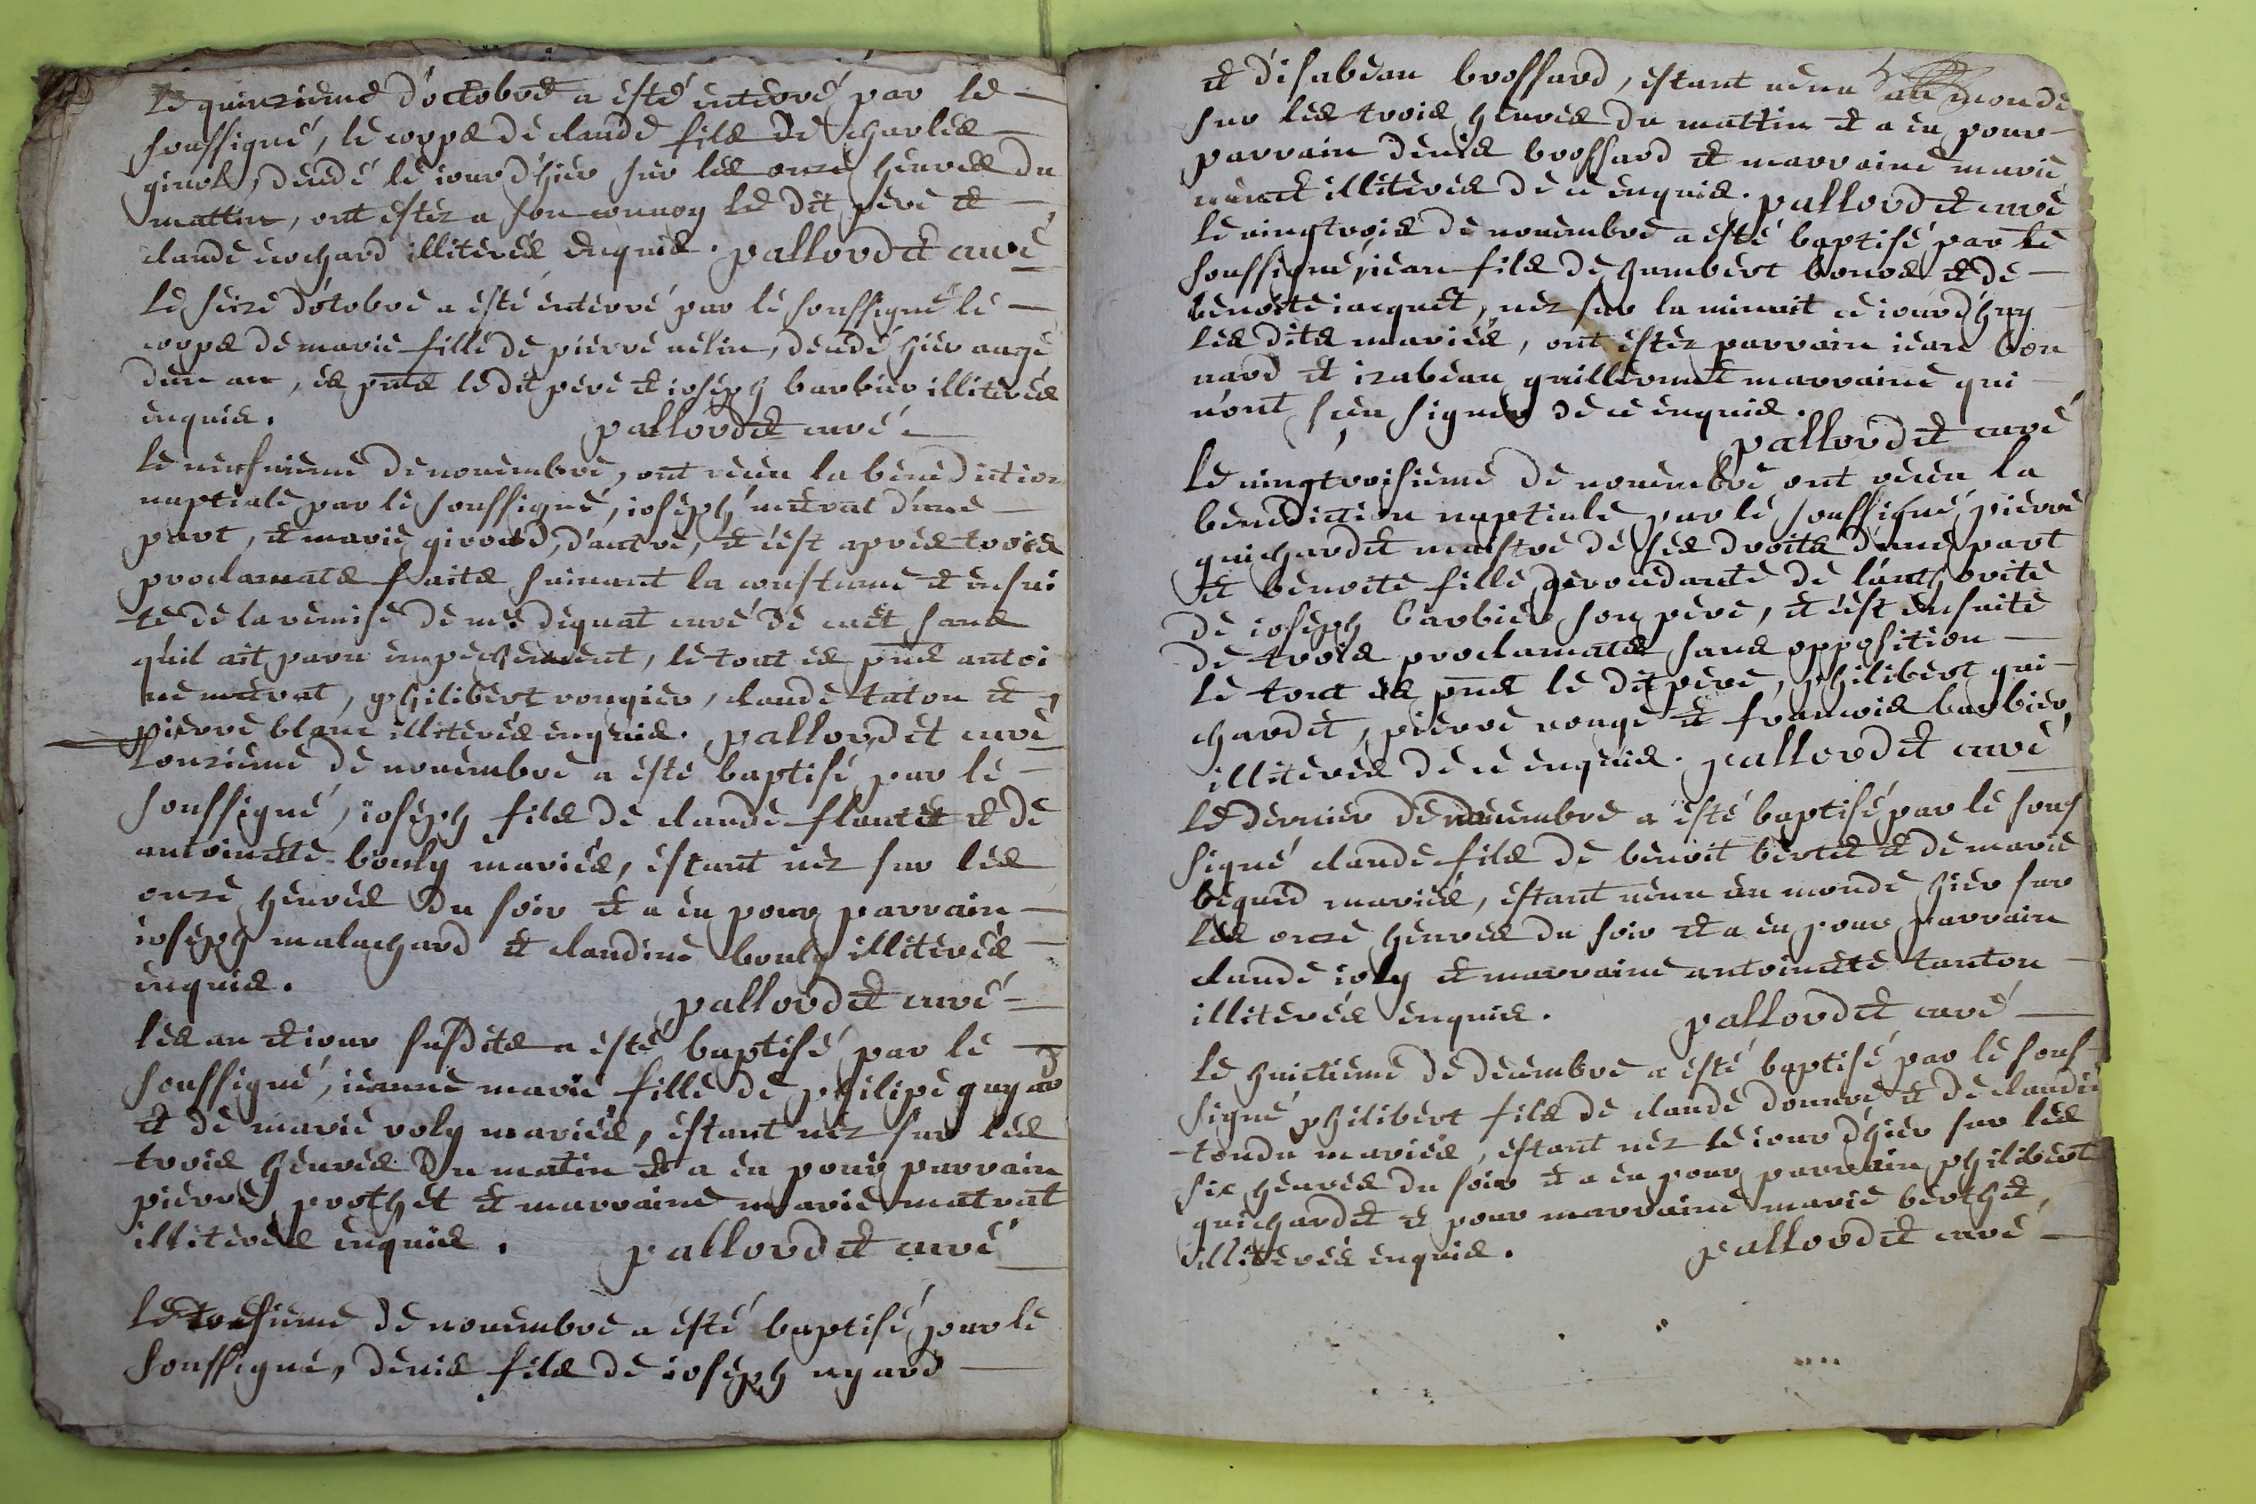 Le quinzieme d'octobre a ésté enterré par le
soussigné, le corps de claude fils de charles
girol, dcedé le iour d'hier sur les onze heures du
mattin, ont estez a son convoy le dit pere et
claude crochard illiterés enquis. pallordet curé
Le seize d'otobre a ésté enterré par le soussigné le
corps de marie fille de pierre velin, decdé hier aagé
d'un an, és pnts le dit pere et ioseph barbier illiterés
enquis. pallordet curé
Le neufvieme de novembre, ont receu la benediction
nuptiale par le soussigné, ioseph metrat d'une
part, et marie giroud, d'autre, et c'est apres trois
proclamats faits suivant la coustume et ensui
te de la remise de mr diguat curé de cuet sans
qu'il ait paru empechement, le tout és pnts antoi
ne metrat, philibert rongier, claude taton et
pierre blanc illiterés enquis. pallordet curé
L'onzieme de novembre a ésté baptisé par le
soussigné, ioseph fils de claude flautet et de
antoinette bouly mariés, éstant néz sur les
onze heures du soir et a eu pour parrain
ioseph malachard et claudine bouly illiterés
enquis. pallordet curé
les an et iour susdits a ésté baptisé par le
soussigné, ieanne marie fille de philipe guyard
et de marie roly mariés, éstant néz sur les
trois heures du matin et a eu pour parrain
pierre prothet et marraine marie matrat
illiterés enquis. pallordet curé
Le tresieme de novembre a ésté baptisé par le
soussigné, denis fils de ioseph uyard
et d'isabeau brossard, éstant venu au monde
sur les trois heures du mattin et a eu pour
parrain denis brossard et marraine marie
illiterés de ce enquis. pallordet curé
Le vingtrois de novembre a ésté baptisé par le
soussigné, iean fils de humbert bonos et de
benoite iacquet, néz sur la minuit ce iourd'huy
les dits mariés, ont éstéz parrain iean bon
nard et izabeau guillermet marraine qui
n'ont sceu signer de ce enquis.
pallordet curé
Le vingtroisieme de novembre ont receu la
benediction nuptiale par le soussigné, pierre
guichardet maistre de ses droits d'une part
et benoite fille procedante de l'authorité
de ioseph barbier son pere, et c'est ensuite
de trois proclamats sans opposition
le tout és pnts le dit pere, philibert gui
chardet, pierre rouge et francois barbier,
illiterés de ce enquis. pallordet curé
Le dernier de novembre a ésté baptisé par le sous
signé claude fils de benoit bertet et de marie
béqued mariés, éstant venu au monde hier sur
les onze heures du soir et a eu pour parrain
claude ioly et marraine antoinette tanton
illiterés enquis. pallordet curé
Le huictieme de decembre a ésté baptisé par le sous
signé philibert fils de claude donnre et de claudi
tondu mariés, éstant néz le iour d'hier sur les
six heures du soir et a eu pour parrain philibert
guichardet et pour marraine marie berthet,
illiterés enquis. pallordet curé